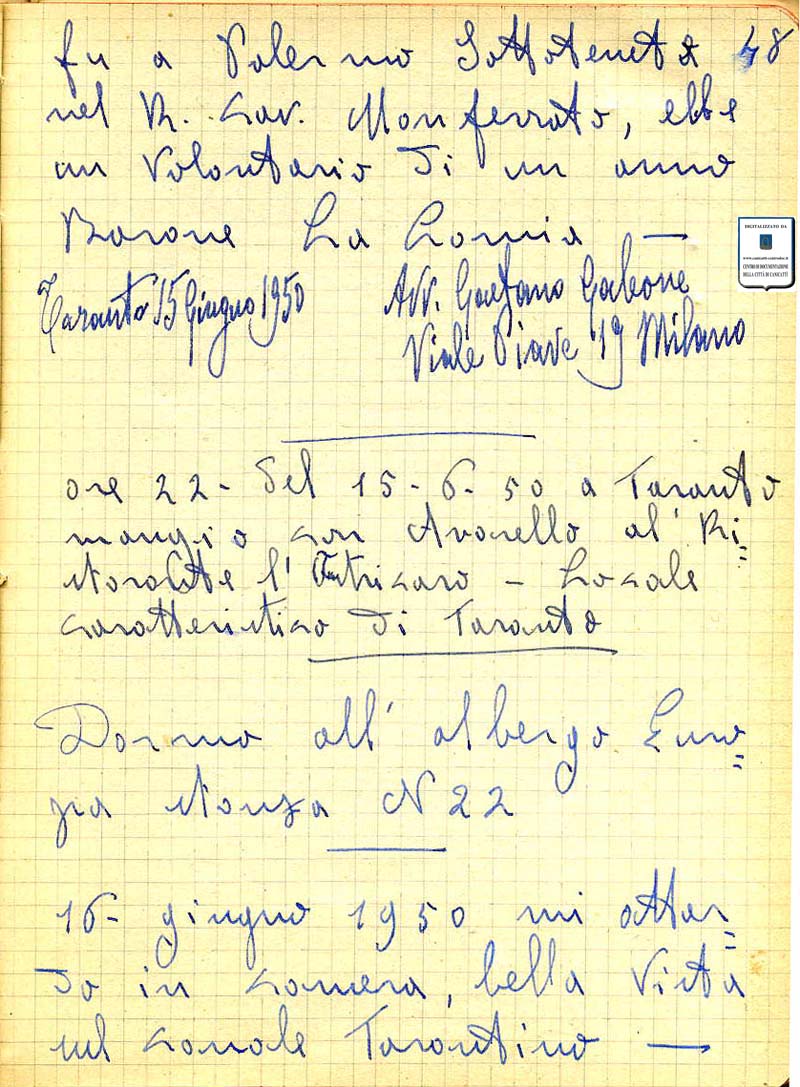 fu a Palermo Sottotenente 48
nel R. Cav. Monferrato, ebbe
un Volontario di un anno
Barone La Lomia —
Taranto 15 Giugno 1950
Avv. Gaetano Galeone
Viale Piave 19 Milano
DIGITALIZZATO DA
CENTRO DI DOCUMENTAZIONE
DELLA CITTÀ DI CANICATTÌ
ore 22 - del 15-6-50 a Taranto
mangio con Avarello al' Ri=
storante l' Ostricaro - Locale
caratteristico di Taranto
Dormo all' albergo Euro=
pa stanza N 22
16- giugno 1950 mi attar=
do in camera, bella Vista
sul canale Tarantino —